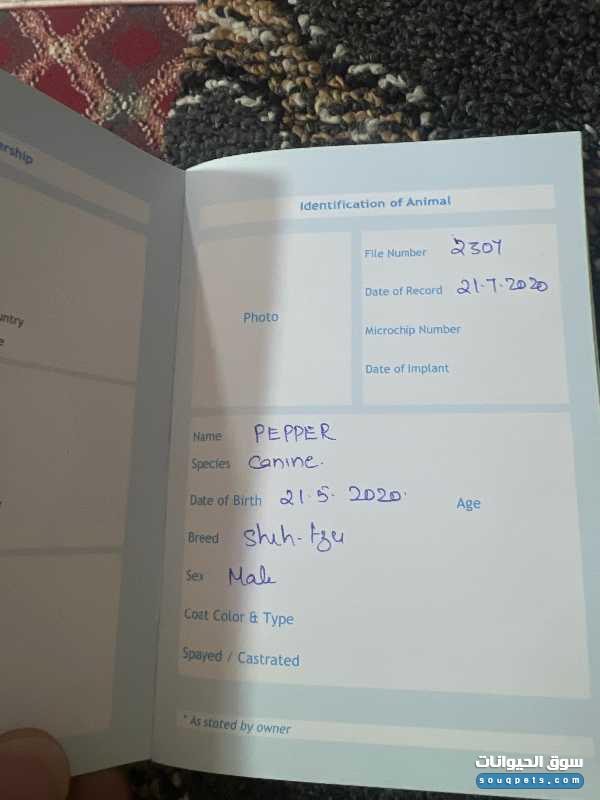 ership
untry
e
Identification of Animal
Photo
File Number 2307
Date of Record 21.7.2020
Microchip Number
Date of Implant
Name PEPPER
Species Canine.
Date of Birth 21.5.2020. Age
Breed Shih-tzu
Sex Male
Coat Color & Type
Spayed / Castrated
* As stated by owner
سوق الحيوانات
souqpets.com